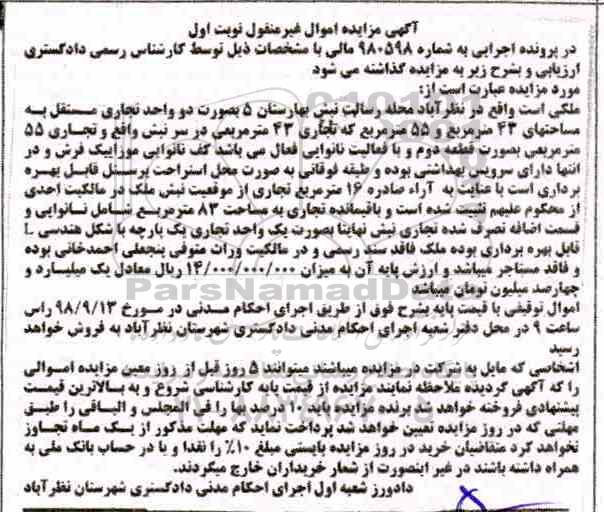 آگهی مزایده اموال غیرمنقول نوبت اول
در پرونده اجرایی به شماره ۹۸۰۵۹۸ مالی با مشخصات ذیل توسط کارشناس رسمی دادگستری
ارزیابی و بشرح زیر به مزایده گذاشته می شود
مورد مزایده عبارت است از:
ملکی است واقع در نظرآباد محله رسالت نبش بهارستان ۵ بصورت دو واحد تجاری مستقل به
مساحتهای ۴۳ مترمربع و ۵۵ مترمربع که تجاری ۴۳ مترمربعی در سر نبش واقع و تجاری ۵۵
مترمربعی بصورت قطعه دوم و با فعالیت نانوایی فعال می باشد کف نانوایی موزاییک فرش و در
انتها دارای سرویس بهداشتی بوده و طبقه فوقانی به صورت محل استراحت پرسنل قابل بهره
برداری است با عنایت به آراء صادره ۱۶ مترمربع تجاری از موقعیت نبش ملک در مالکیت احدی
از محکوم علیهم تثبیت شده است و باقیمانده تجاری به مساحت ۸۳ مترمربع شامل نانوایی و
قسمت اضافه تصرف شده تجاری نبش نهایتا بصورت یک واحد تجاری یک پارچه با شکل هندسی L
قابل بهره برداری بوده ملک فاقد سند رسمی و در مالکیت وراث متوفی پنجعلی احمدخانی بوده
و فاقد مستاجر میباشد و ارزش پایه آن به میزان ۱۴/۰۰۰/۰۰۰/۰۰۰ ریال معادل یک میلیارد و
چهارصد میلیون تومان میباشد
اموال توقیفی با قیمت پایه بشرح فوق از طریق اجرای احکام مدنی در مورخ ۹۸/۹/۱۳ راس
ساعت ۹ در محل دفتر شعبه اجرای احکام مدنی دادگستری شهرستان نظرآباد به فروش خواهد
رسید
اشخاصی که مایل به شرکت در مزایده میباشند میتوانند ۵ روز قبل از روز معین مزایده اموالی
را که آگهی گردیده ملاحظه نمایند مزایده از قیمت پایه کارشناسی شروع و به بالاترین قیمت
پیشنهادی فروخته خواهد شد برنده مزایده باید ۱۰ درصد بها را فی المجلس و الباقی را طبق
مهلتی که در روز مزایده تعیین خواهد شد پرداخت نماید که مهلت مذکور از یک ماه تجاوز
نخواهد کرد متقاضیان خرید در روز مزایده بایستی مبلغ ۱۰٪ را نقدا و یا در حساب بانک ملی به
همراه داشته باشند در غیر اینصورت از شمار خریداران خارج میگردند.
دادورز شعبه اول اجرای احکام مدنی دادگستری شهرستان نظرآباد
ParsNamadData